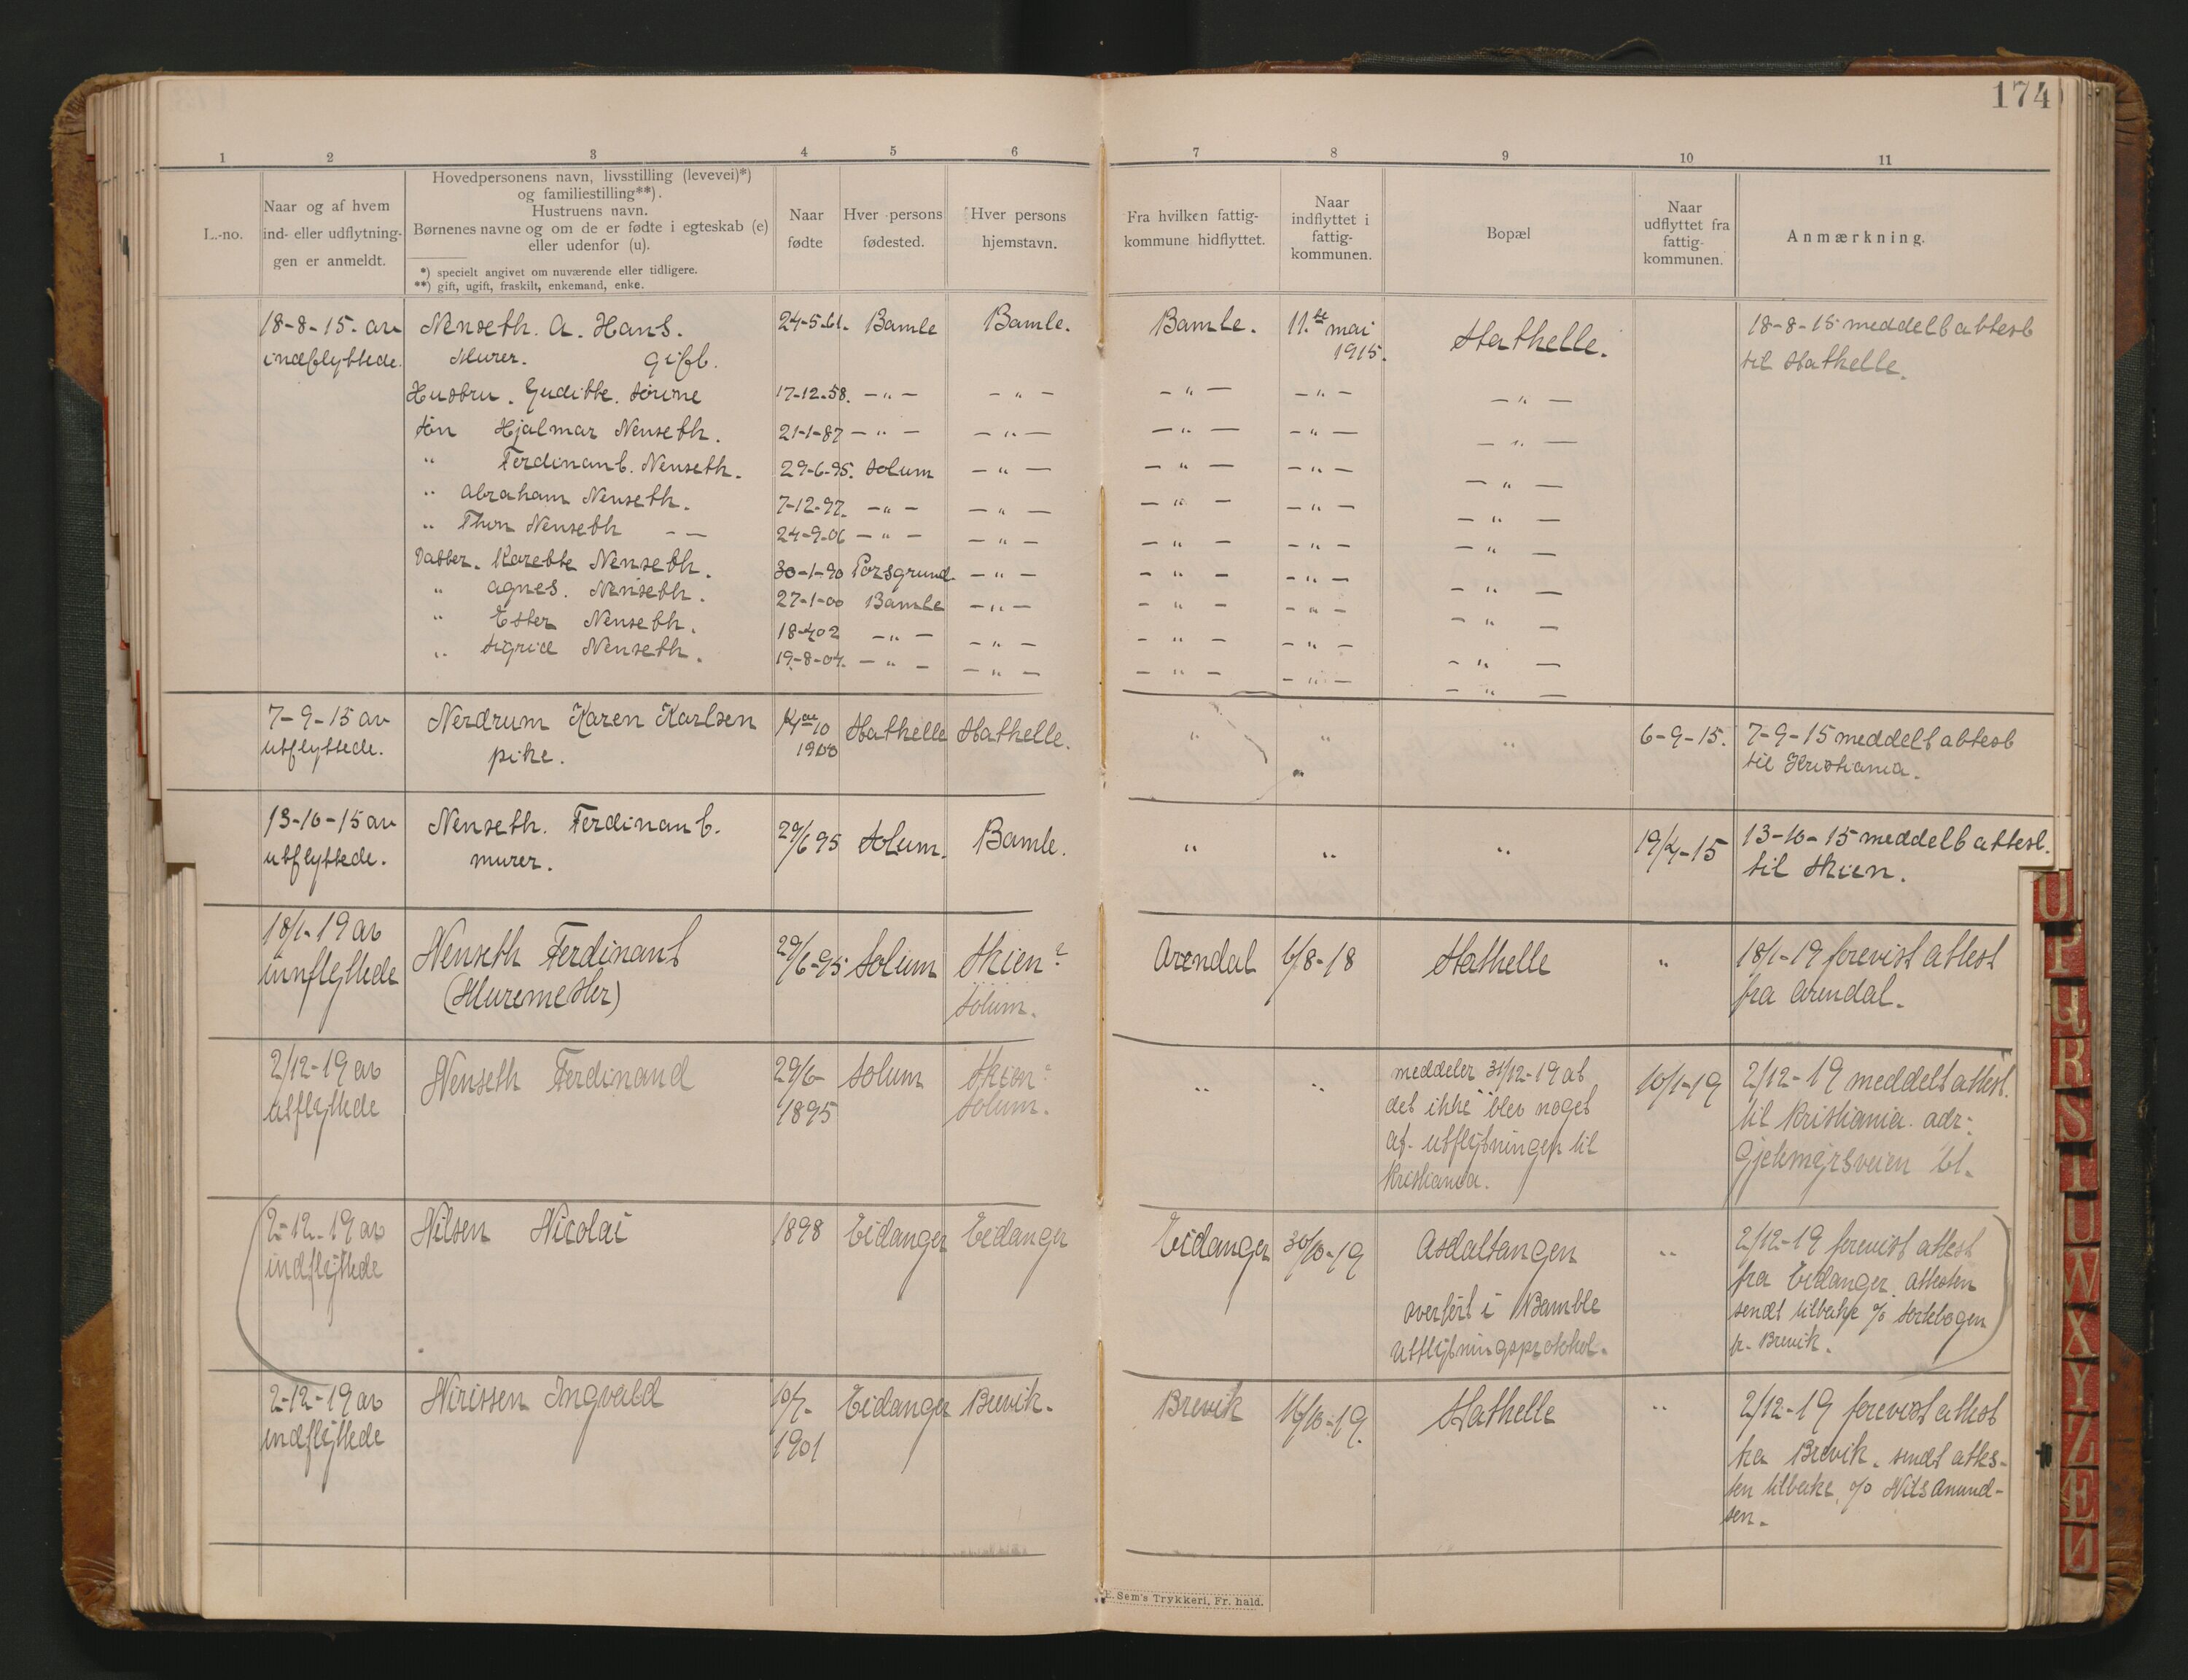 174
1 2 3 4 5 6 7 8 9 10 11
L.-no.
Naar og af hvem
ind- eller udflytnin-
gen er anmeldt.
Hovedpersonens navn, livsstilling (levevei)*)
og familiestilling**).
Hustruens navn.
Børnenes navne og om de er fødte i egteskab (e)
eller udenfor (u).
*) specielt angivet om nuværende eller tidligere.
**) gift, ugift, fraskilt, enkemand, enke.
Naar
fødte
Hver persons
fødested.
Hver persons
hjemstavn.
Fra hvilken fattig-
kommune hidflyttet.
Naar
indflyttet i
fattig-
kommunen.
Bopæl
Naar
udflyttet fra
fattig-
kommunen.
Anmærkning.
18-8-15. av Nenseth. A. Hans. 24-5-61. Bamle Bamle. Bamle. 11.te mai Stathelle. 18-8-15 meddelt attest
indflyttede. Murer. Gift. 1915. til Stathelle.
Hustru. Guditte. Sørine 17-12-58. -"- -"- -"- -"- -"-
Søn Hjalmar Nenseth. 21-1-87 -"- -"- -"- -"- -"-
" Ferdinant. Nenseth. 29-6-95. Solum -"- -"- -"- -"-
" Abraham Nenseth. 7-12-97. -"- -"- -"- -"- -"-
" Thor Nenseth -- 24-9-06 -"- -"- -"- -"- -"-
Datter. Karette Nenseth. 30-1-90 Porsgrund. -"- -"- -"- -"-
" Agnes. Nenseth. 27-1-00 Bamle -"- -"- -"- -"-
" Ester Nenseth. 18-4-02 -"- -"- -"- -"- -"-
" Sigrid Nenseth. 19-8-04. -"- -"- -"- -"- -"-
7-9-15 av Nerdrum Karen Karlsen Stathelle Stathelle. " " " 6-9-15. 7-9-15 meddelt attest
utflyttede. pike. 1900 " til Kristiania.
13-10-15 av Nenseth. Ferdinant. 29/6 95 Solum. Bamle. " " " 19/4-15 13-10-15 meddelt attest.
utflyttede. murer. til Skien.
18/1-19 av Nenseth Ferdinant 29/6-95 Solum Skien? Arendal 6/8-18 Stathelle " 18/1-19 forevist attest
innflyttede (Muremester) Solum. fra Arendal.
2/12-19 av Nenseth Ferdinand 29/6- Solum Skien? " " meddeler 31/12-19 at 10/1-19 2/12-19 meddelt attest.
utflyttede 1895 Solum. det ikke blev noget til Kristiania. adr:
af utflytningen til
Kristiania.
2-12-19 av Nilsen Nicolai 1898 Eidanger Eidanger Eidanger 30/10-19 Asdaltangen " 2/12-19 forevist attest
indflyttede fra Eidanger. attesten
overført i Bamble sendt tilbake %
utflytningsprotokol. Brevik.
2-12-19 av Nirissen Ingvald 10/7- Eidanger Brevik. Brevik 16/10-19. Stathelle " 2/12-19 forevist attest
indflyttede 1901 fra Brevik. sendt attes-
ten tilbake % Nils Amund-
sen.
E. Sem's Trykkeri, Fr. hald.
O
P
Q
R
S
T
U
W
X
Y
Z
Æ
Ø